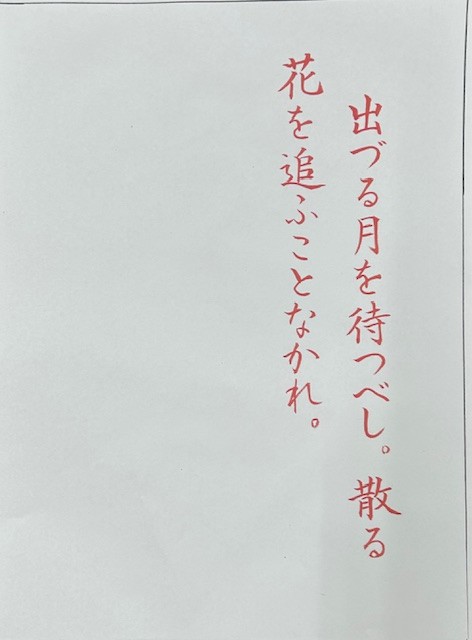 出づる月を待つべし。散る
花を追ふことなかれ。